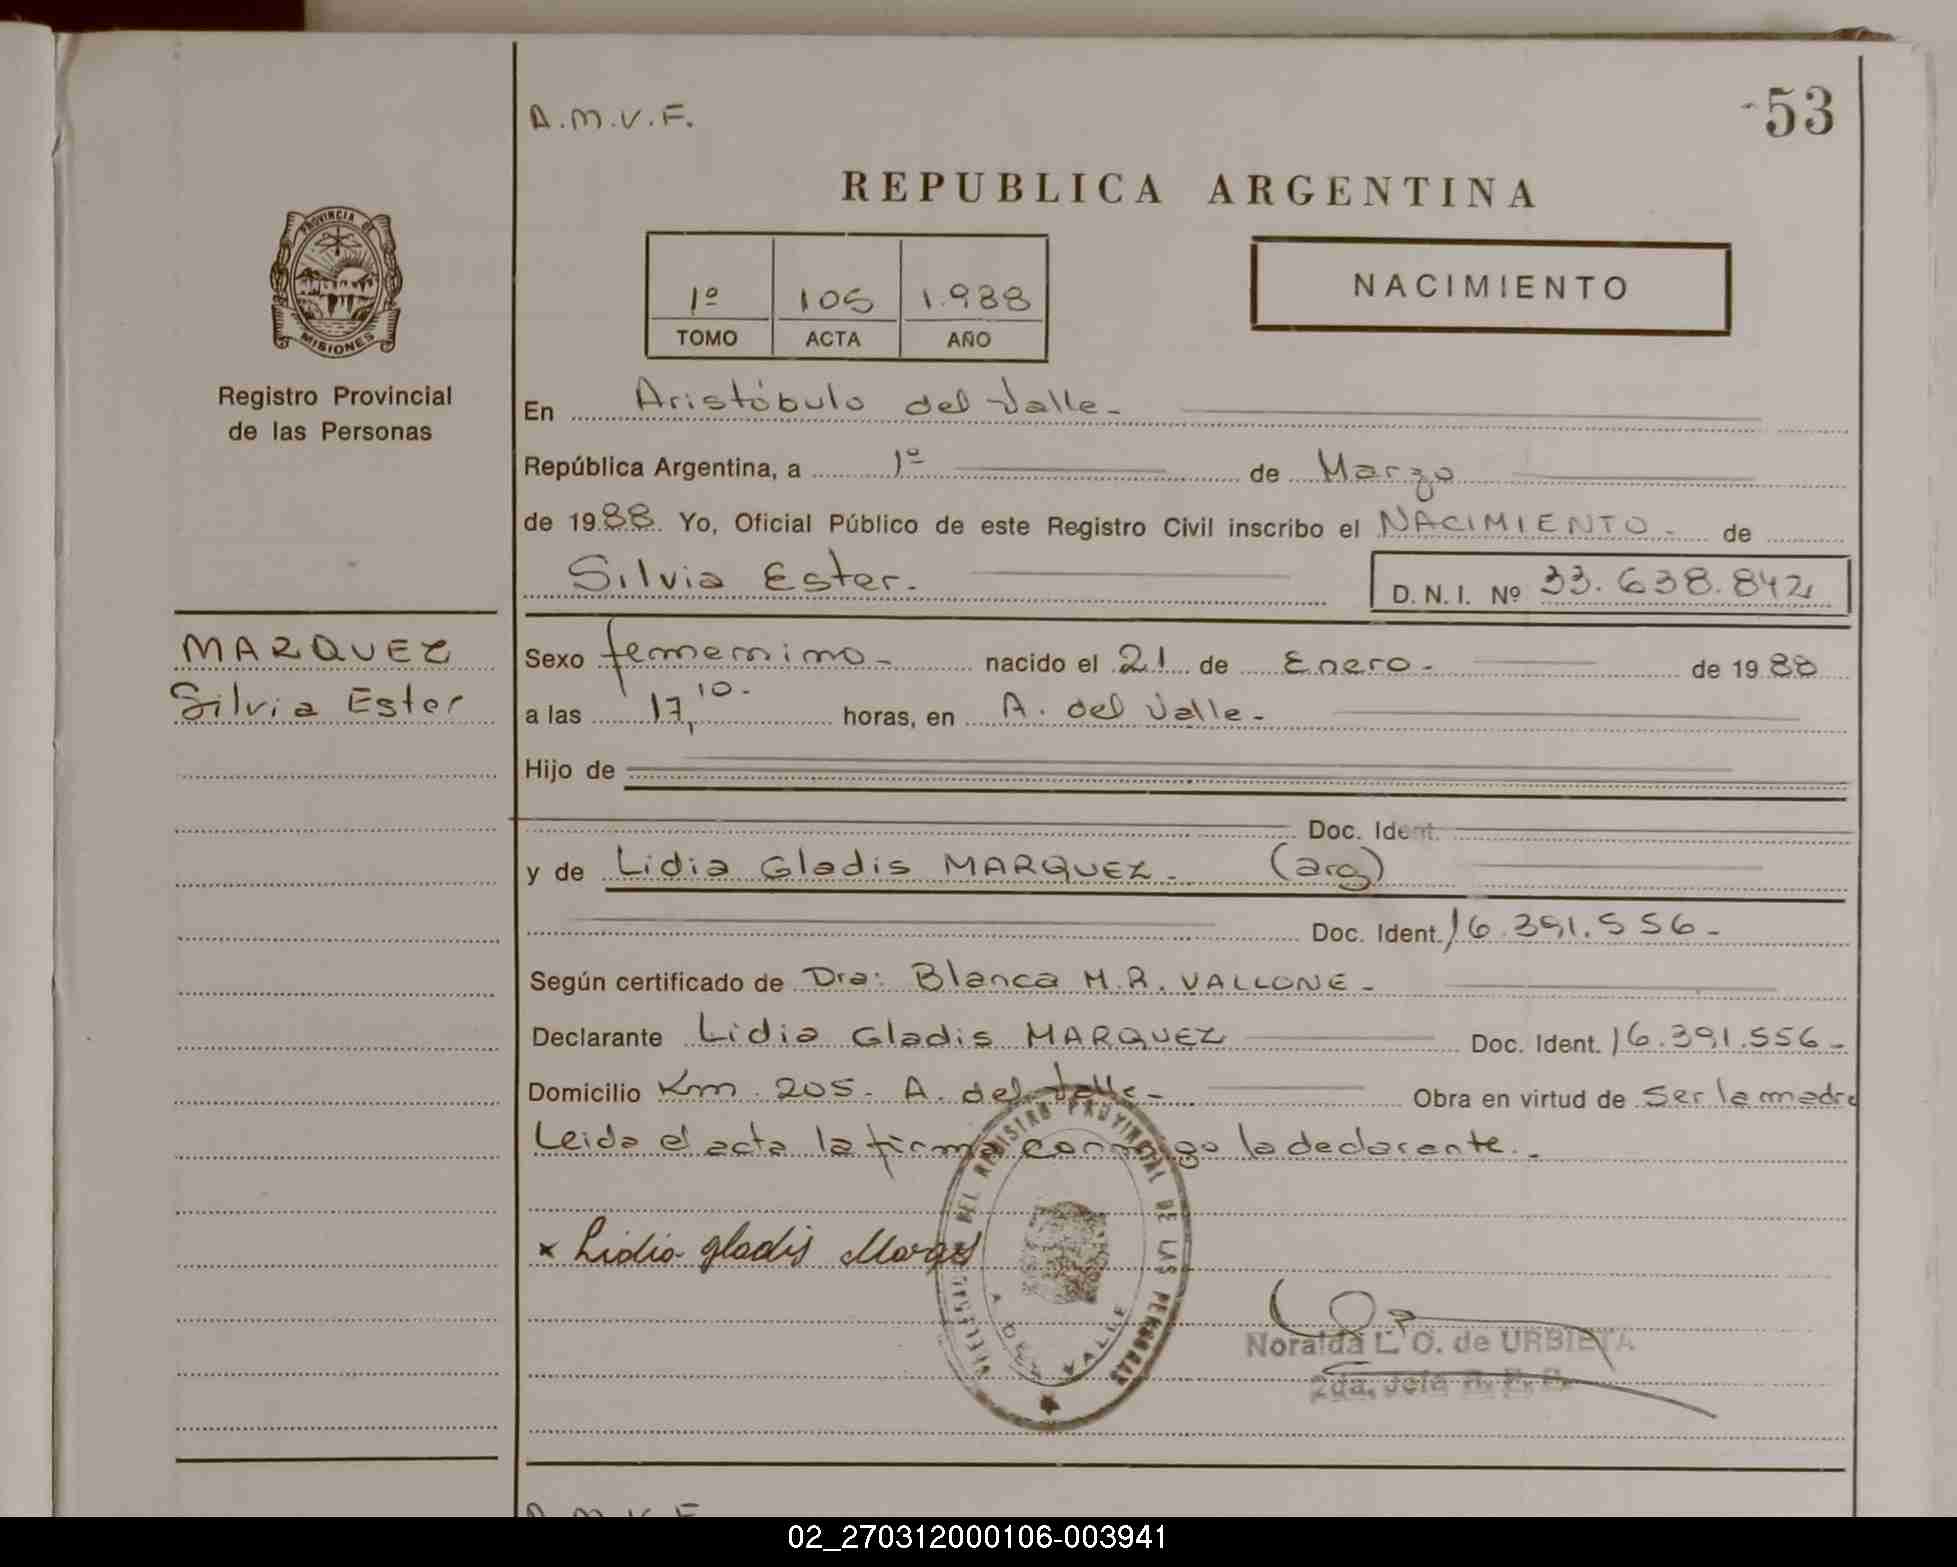 A.M.V.F.
53
REPUBLICA ARGENTINA
PROVINCIA DE
MISIONES
Registro Provincial
de las Personas
1º 105 1.988
TOMO ACTA AÑO
NACIMIENTO
En Aristóbulo del Valle.-
República Argentina, a 1º de Marzo
de 1988. Yo, Oficial Público de este Registro Civil inscribo el NACIMIENTO.- de
Silvia Ester.
D. N. I. Nº 33.638.842
MARQUEZ
Silvia Ester
Sexo femenino.- nacido el 21 de Enero.- de 1988
a las 17,10. horas, en A. del Valle.-
Hijo de
Doc. Ident.
y de Lidia Gladis MARQUEZ.- (arg)
Doc. Ident. 16.391.556-
Según certificado de Dra: Blanca M.R. VALLONE.-
Declarante Lidia Gladis MARQUEZ Doc. Ident. 16.391.556-
Domicilio Km. 205. A. del Valle- Obra en virtud de Ser la madre
Leida el acta la firma conmigo la declarante.-
x Lidia gladis Marqes
DEL REGISTRO PROVINCIAL DE LAS PERSONAS
A. DEL VALLE
Noralda L. O. de URBIETA
2da. Jefa R. P. P.
A.M.V.F.
02_270312000106-003941